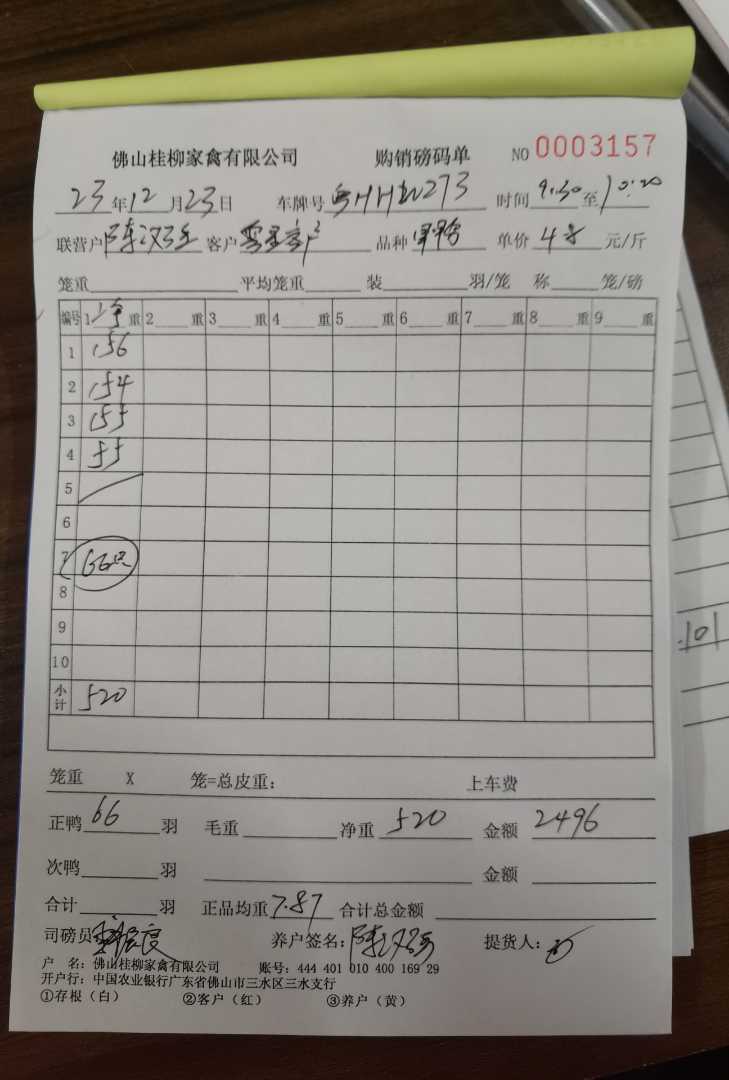 佛山桂柳家禽有限公司 购销磅码单 NO 0003157
23年12月23日 车牌号 273 时间 9:30 至 10:20
联营户 陈汉 客户 品种 单价 4.8 元/斤
笼重 平均笼重 装 羽/笼 称 笼/磅
编号 1 净 重 2 重 3 重 4 重 5 重 6 重 7 重 8 重 9 重
1 156
2 154
3 155
4 55
5
6
7 66只
8
9
10
小计 520
笼重 X 笼=总皮重: 上车费
正鸭 66 羽 毛重 净重 520 金额 2496
次鸭 羽 金额
合计 羽 正品均重 7.87 合计总金额
司磅员 养户签名: 陈汉 提货人:
户 名: 佛山桂柳家禽有限公司 账号: 444 401 010 400 169 29
开户行: 中国农业银行广东省佛山市三水区三水支行
①存根（白） ②客户（红） ③养户（黄）
101